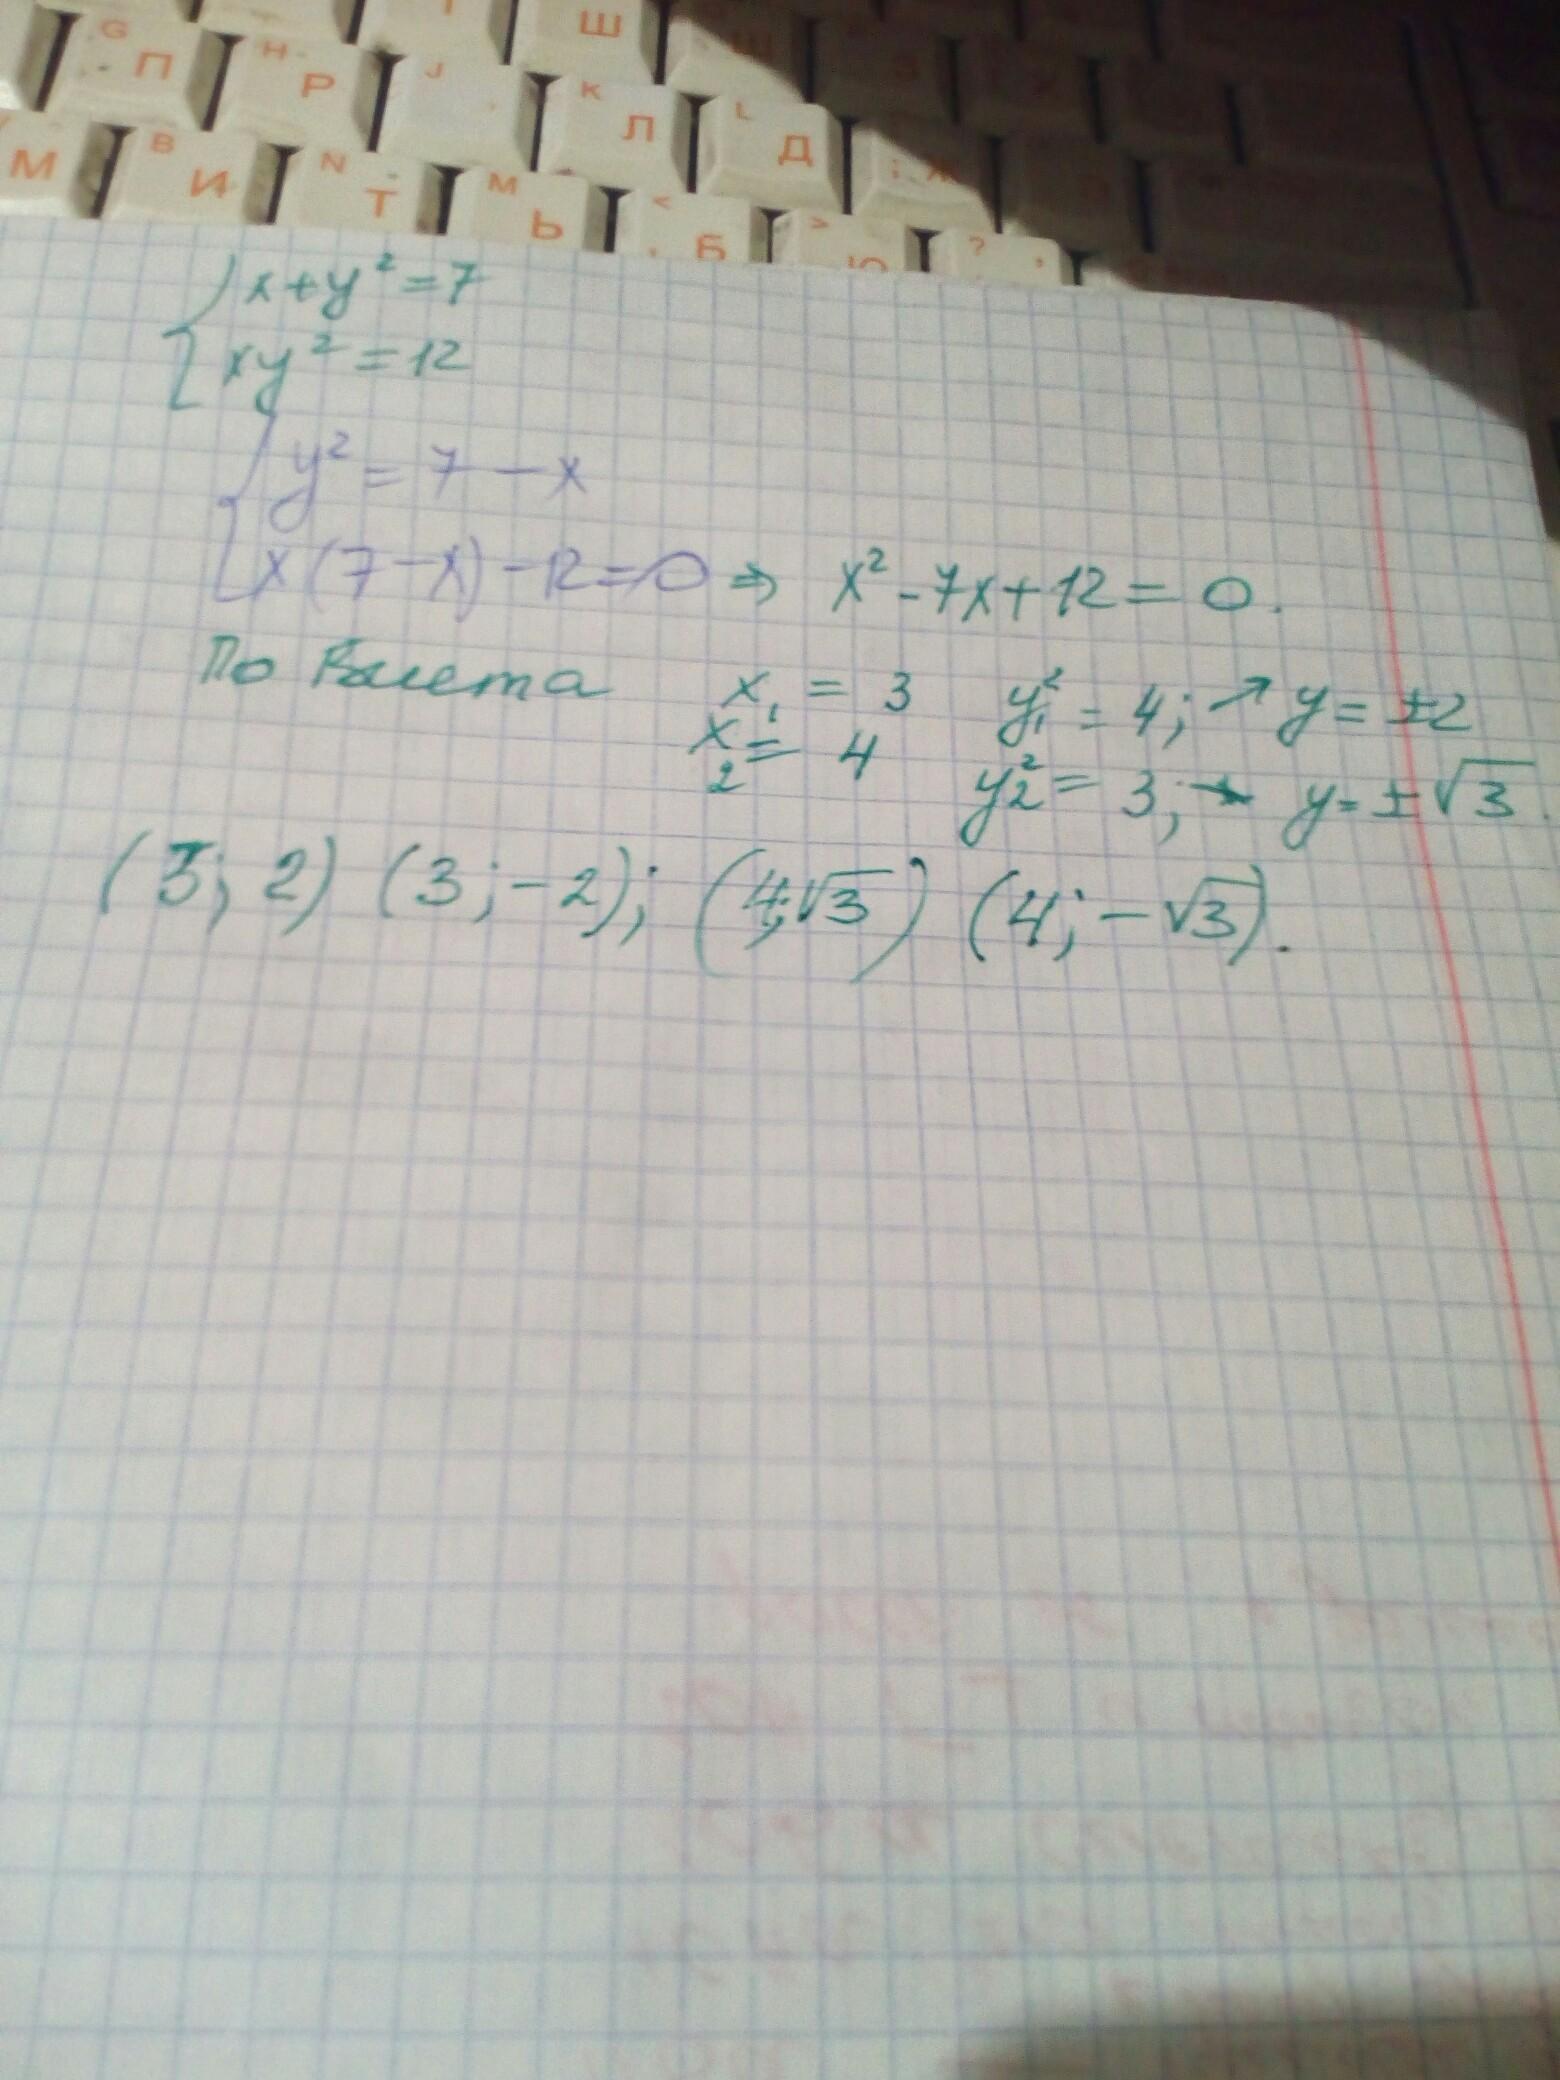 Ш Щ
G П H Р J К Л L Д ; Ж
М B И N Т M Ь < , Б > Ю ? .
{ x + y² = 7
xy² = 12
{ y² = 7 - x
x(7 - x) - 12 = 0 ⇒ x² - 7x + 12 = 0.
По Виета x₁ = 3 y₁² = 4; ↗ y = ±2
x₂ = 4 y₂² = 3; → y = ± √3.
(3; 2) (3; -2); (4; √3) (4; -√3).